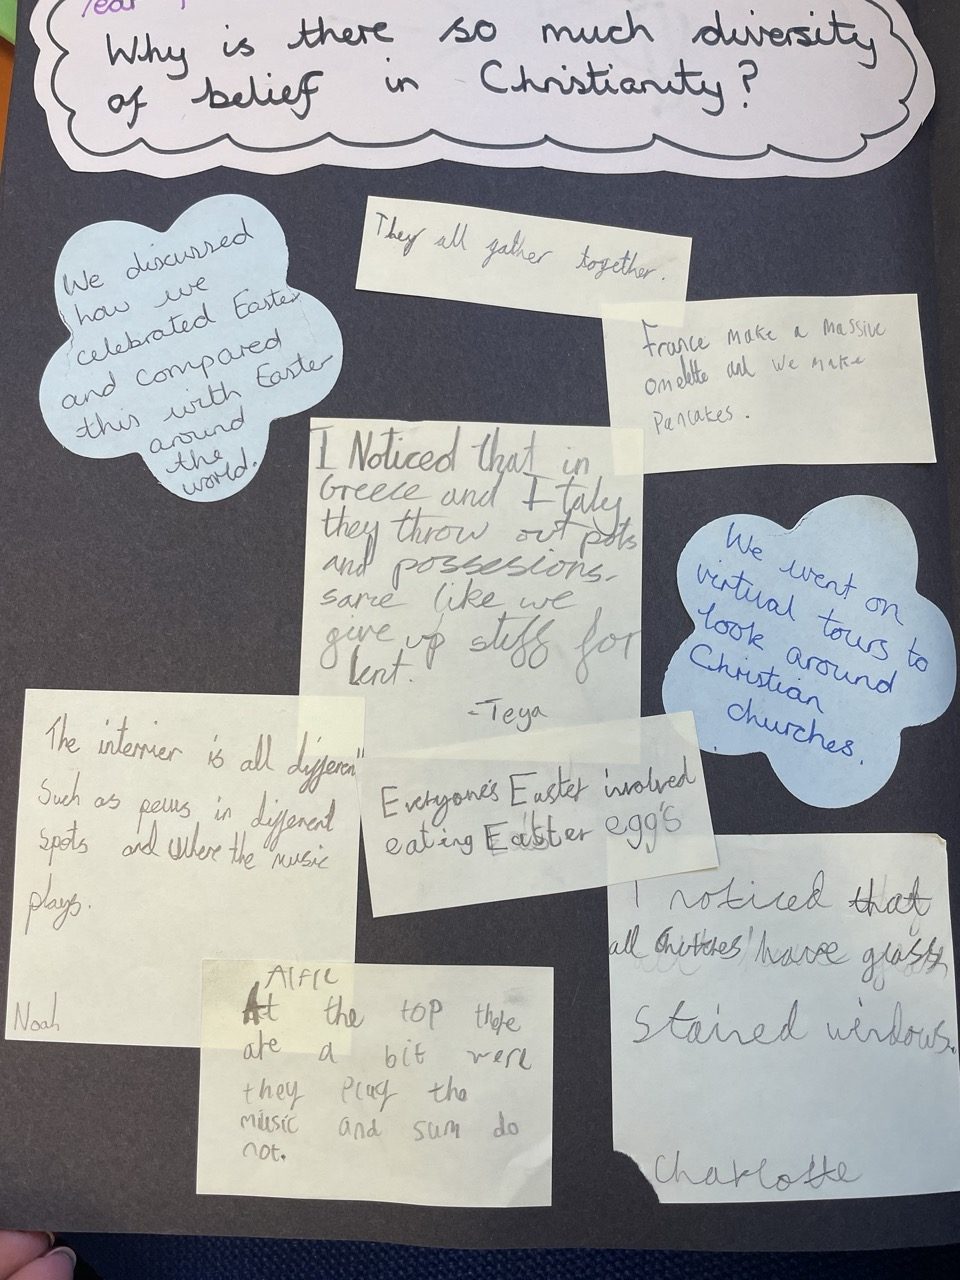 Year
Why is there so much diversity
of belief in Christianity?
We discussed
how we
celebrated Easter
and compared
this with Easter
around
the
world.
They all gather together.
France make a massive
omelette and we make
Pancakes.
I Noticed that in
Greece and Italy
they throw out pots
and possesions.
same like we
give up stuff for
lent.
-Teya
We went on
virtual tours to
look around
Christian
churches.
The interrier is all differen
Such as pews in different
spots and where the music
plays.
Noah
Everyone's Easter involved
eating Easter egg's
I noticed that
all have glass
Stained windows.
Charlotte
Alfie
At the top there
are a bit were
they play the
music and sum do
not.